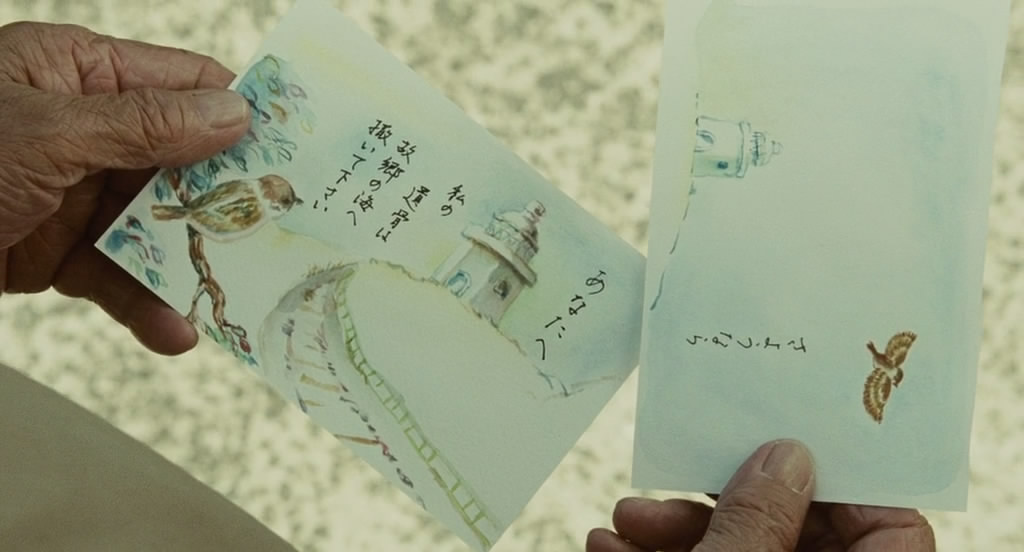 あなたへ
私の
遺骨は
故郷の海へ
撒いて下さい
さようなら